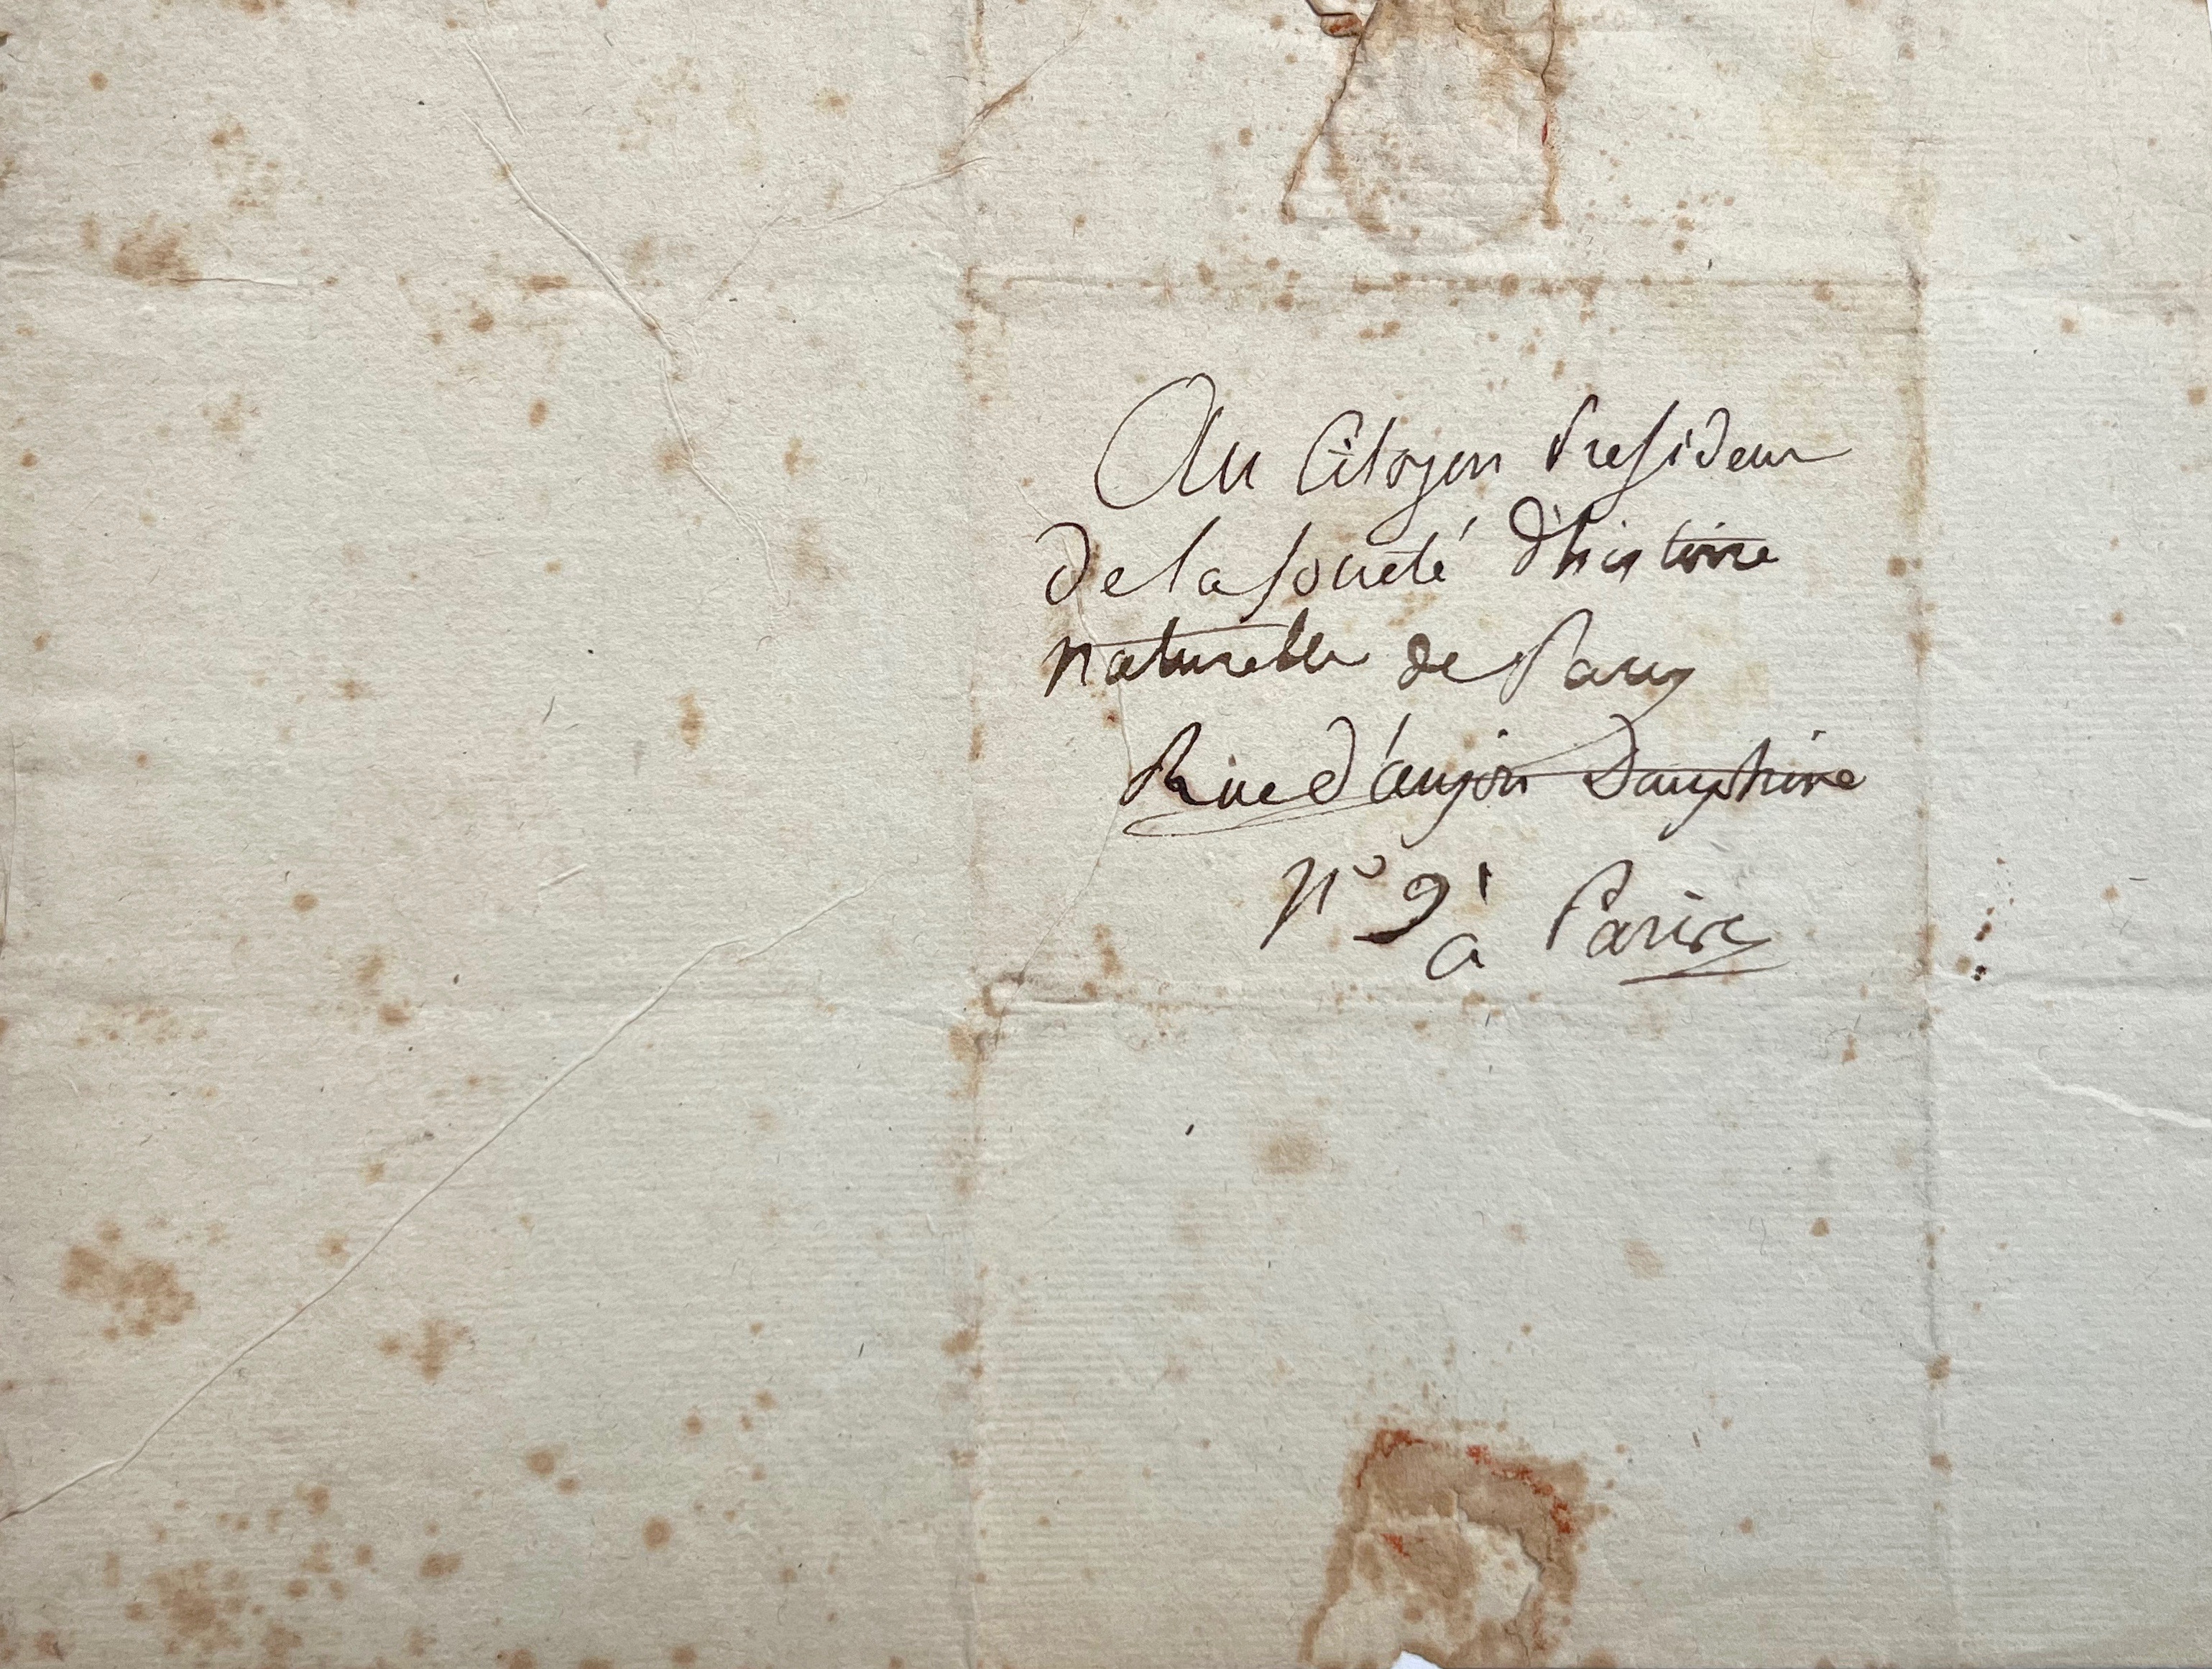 Au Citoyen President
de la société d'histoire
naturelle de Paris
Rue d'anjou Dauphine
N° 9
à Paris